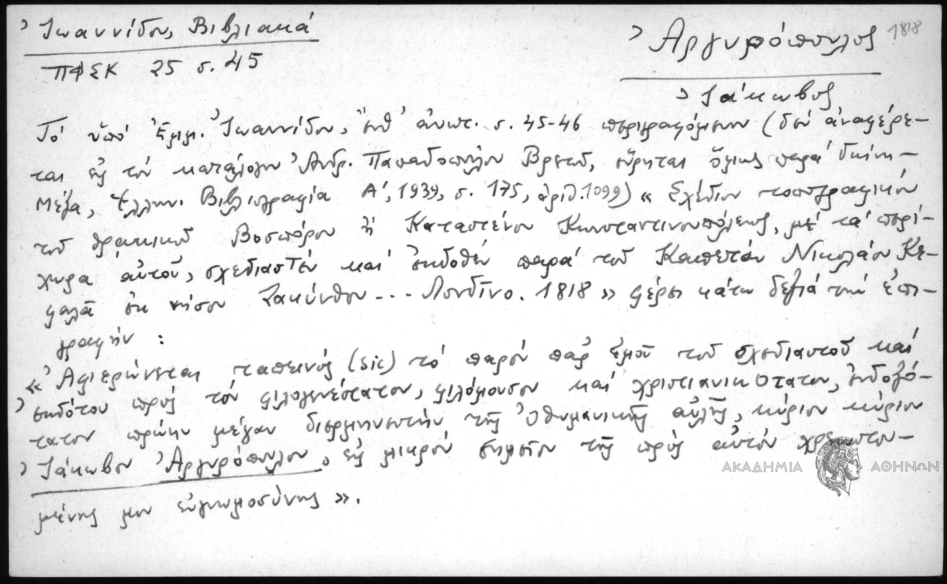 Ἰωαννίδου, Βιβλιακά
ΠΦΣΚ 25 σ. 45
1818
Ἀργυρόπουλος
Ἰάκωβος
Τό ὑπό Ἐμμ. Ἰωαννίδου, ἔνθ' ἀνωτ. σ. 45-46 περιγραφόμενον (δέν ἀναφέρε-
ται εἰς τόν κατάλογον Ἀνδρ. Παπαδοπούλου Βρετοῦ, εὕρηται ὅμως παρά Γκίνη-
Μέξα, Ἑλλην. Βιβλιογραφία Α', 1939, σ. 175, ἀριθ. 1099) « Σχέδιον τοπογραφικόν
τοῦ Θρακικοῦ Βοσπόρου ἤ Καταστένου Κωνσταντινουπόλεως, μέ τά πρί-
χωρα αὐτοῦ, σχεδιασθέν καί ἐκδοθέν παρά τοῦ Καπετάν Νικολάου Κε-
φαλᾶ ἐκ νήσου Ζακύνθου... Λονδῖνο. 1818 » φέρει κάτω δεξιά τήν ἐπι-
γραφήν :
« Ἀφιερώνεται ταπεινός (sic) τό παρόν παρ' ἐμοῦ τοῦ σχεδιαστοῦ καί
ἐκδότου πρός τόν φιλογενέστατον, φιλόμουσον καί χριστιανικώτατον, ἐνδοξό-
τατον πρώην μέγαν διερμηνευτήν τῆς Ὀθωμανικῆς αὐλῆς, κύριον κύριον
Ἰάκωβον Ἀργυρόπουλον, εἰς μικρόν σημεῖον τῆς πρός αὐτόν χρεωστου-
μένης μου εὐγνωμοσύνης ».
ΑΚΑΔΗΜΙΑ ΑΘΗΝΩΝ